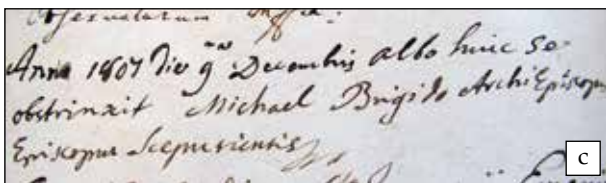 Anno 1807 Die 9na Decembris albo huic se
obstrinxit Michael Brigido ArchiEpiscopus
Episcopus Scepusiensis
C